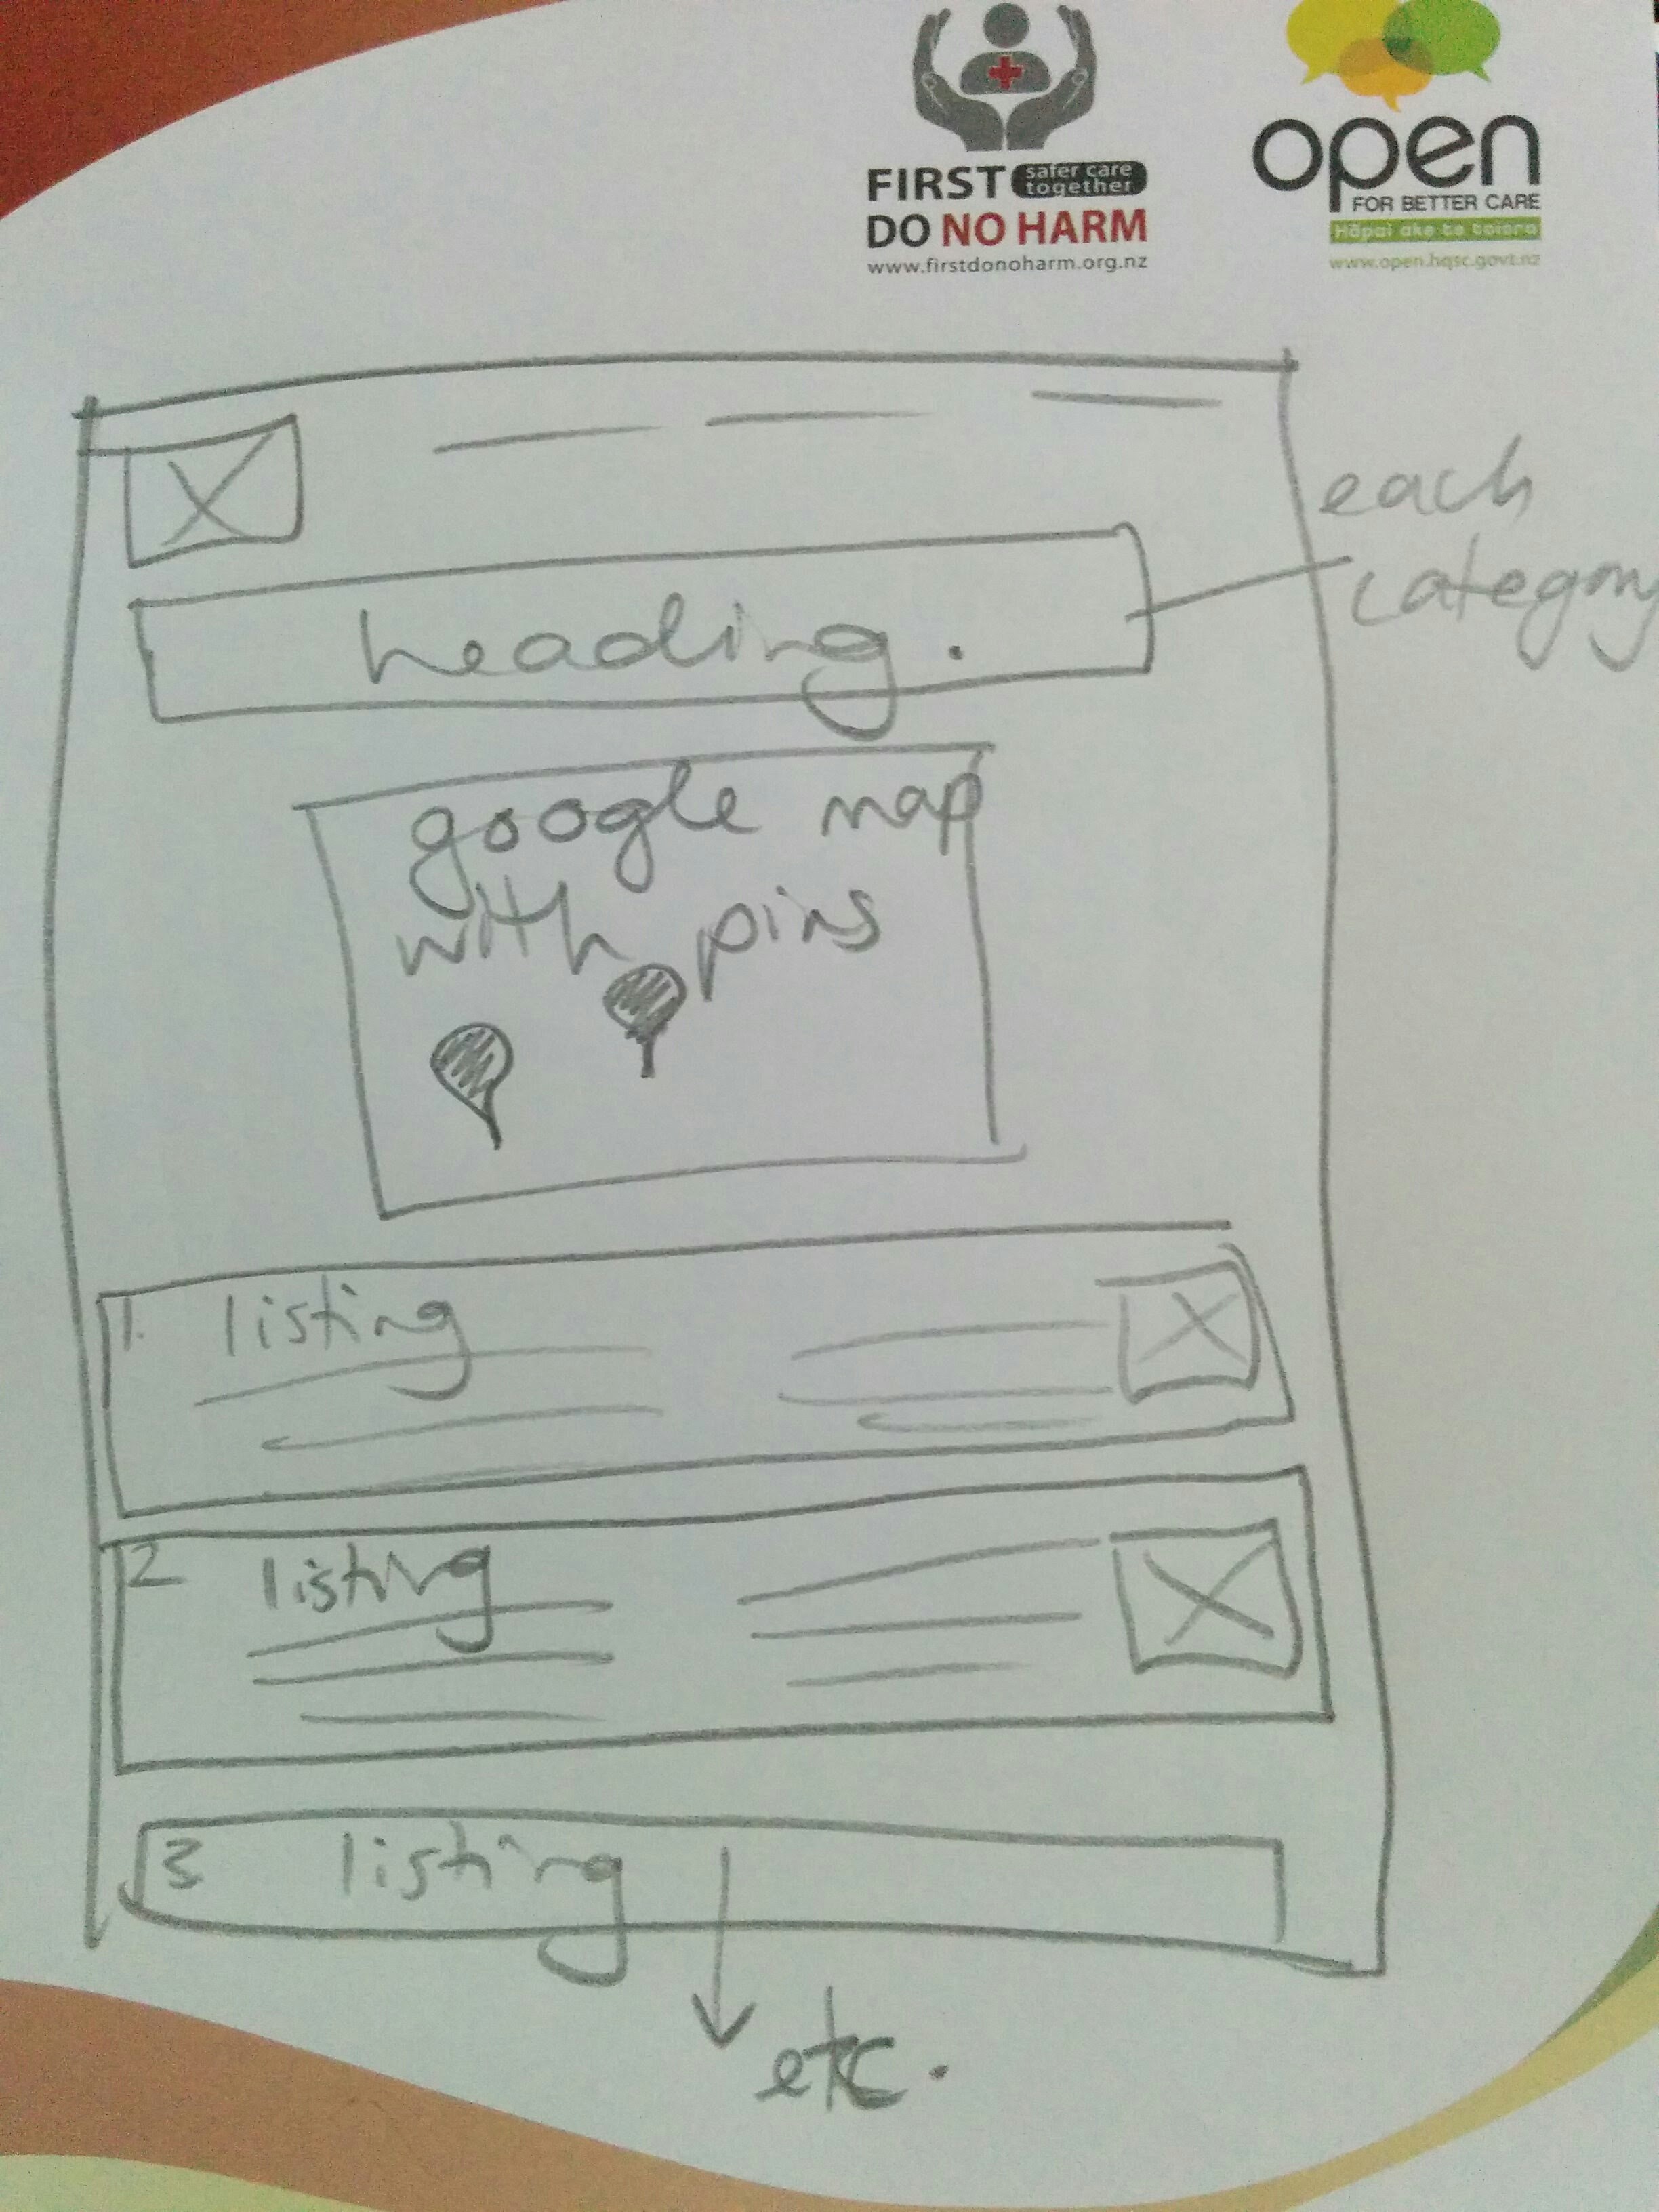 FIRST safer care together
DO NO HARM
www.firstdonoharm.org.nz
open
FOR BETTER CARE
Hāpai ake te toiora
www.open.hqsc.govt.nz
each
category
heading.
google map
with pins
1. listing
2 listing
3 listing
etc.